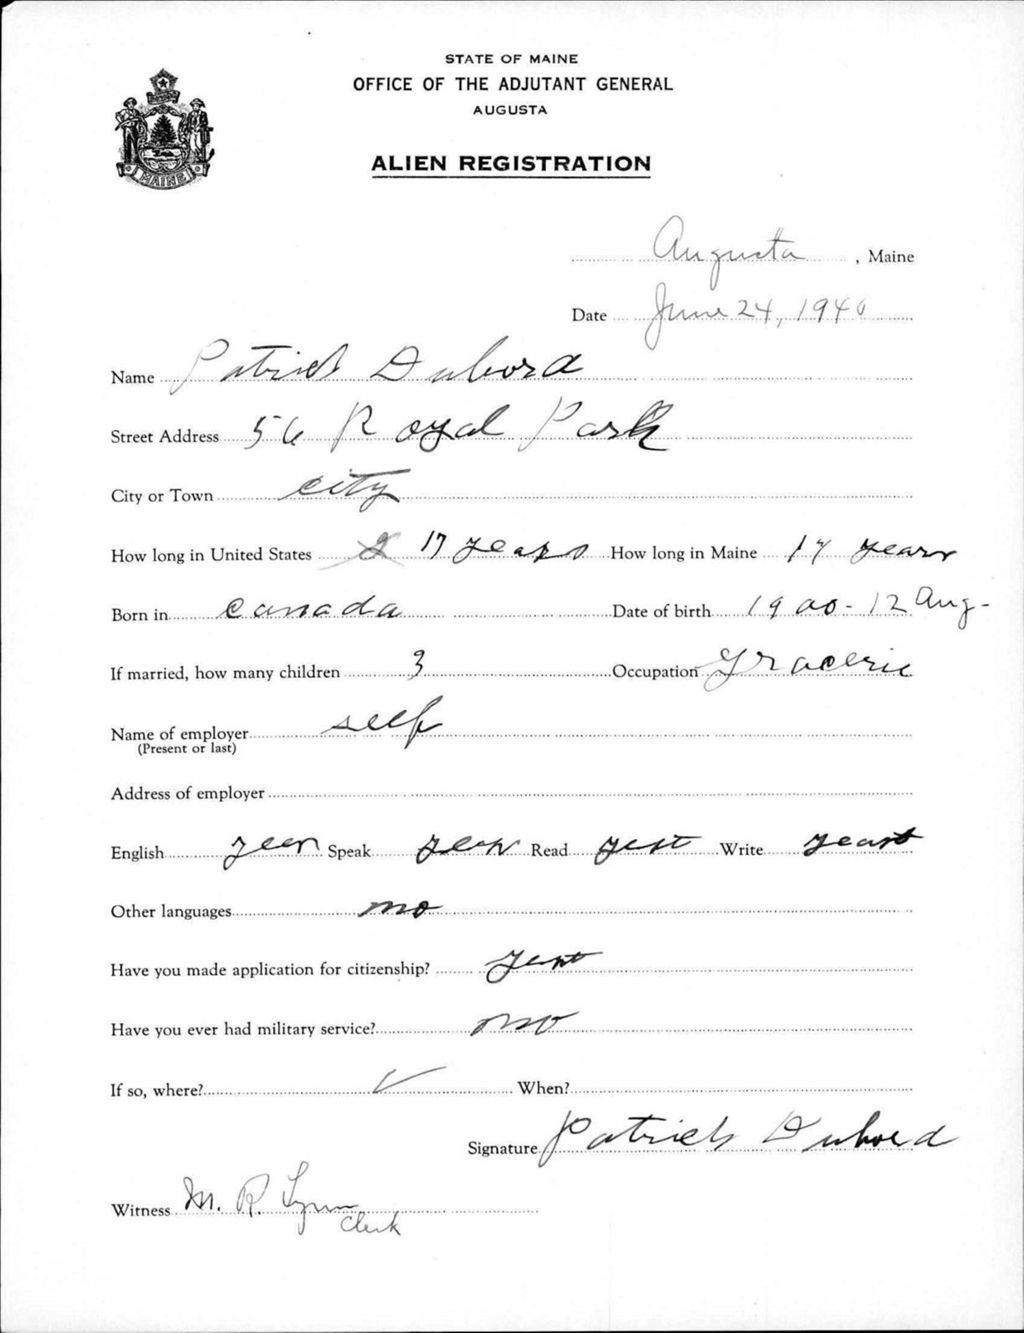 STATE OF MAINE
OFFICE OF THE ADJUTANT GENERAL
AUGUSTA
MAINE
ALIEN REGISTRATION
Augusta, Maine
Date June 24, 1940
Name Patrick Dubord
Street Address 56 Royal Park
City or Town city
How long in United States 17 years How long in Maine 17 years
Born in Canada Date of birth 1900-12 Aug-
If married, how many children 3 Occupation
Name of employer self
(Present or last)
Address of employer
English Speak Read Write
Other languages no
Have you made application for citizenship?
Have you ever had military service? no
If so, where? When?
Signature Patrick Dubord
Witness M. R. Lynn
Clerk